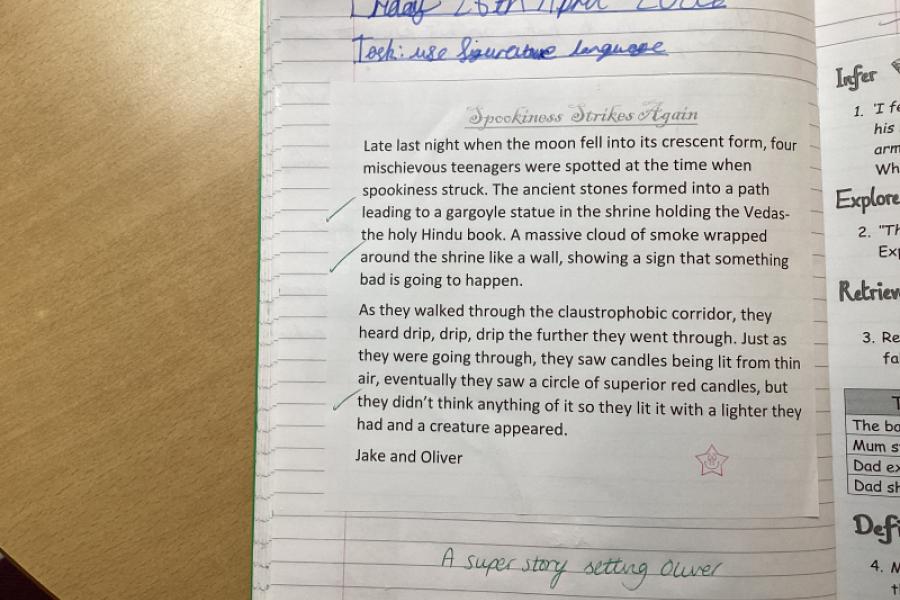 Friday 28th April
Task: use figurative language
Spookiness Strikes Again
Late last night when the moon fell into its crescent form, four
mischievous teenagers were spotted at the time when
spookiness struck. The ancient stones formed into a path
leading to a gargoyle statue in the shrine holding the Vedas-
the holy Hindu book. A massive cloud of smoke wrapped
around the shrine like a wall, showing a sign that something
bad is going to happen.
As they walked through the claustrophobic corridor, they
heard drip, drip, drip the further they went through. Just as
they were going through, they saw candles being lit from thin
air, eventually they saw a circle of superior red candles, but
they didn't think anything of it so they lit it with a lighter they
had and a creature appeared.
Jake and Oliver
A super story setting Oliver
Infer
1. 'I
his
Explore
2.
3.
The
Mum
Dad
Dad
4.